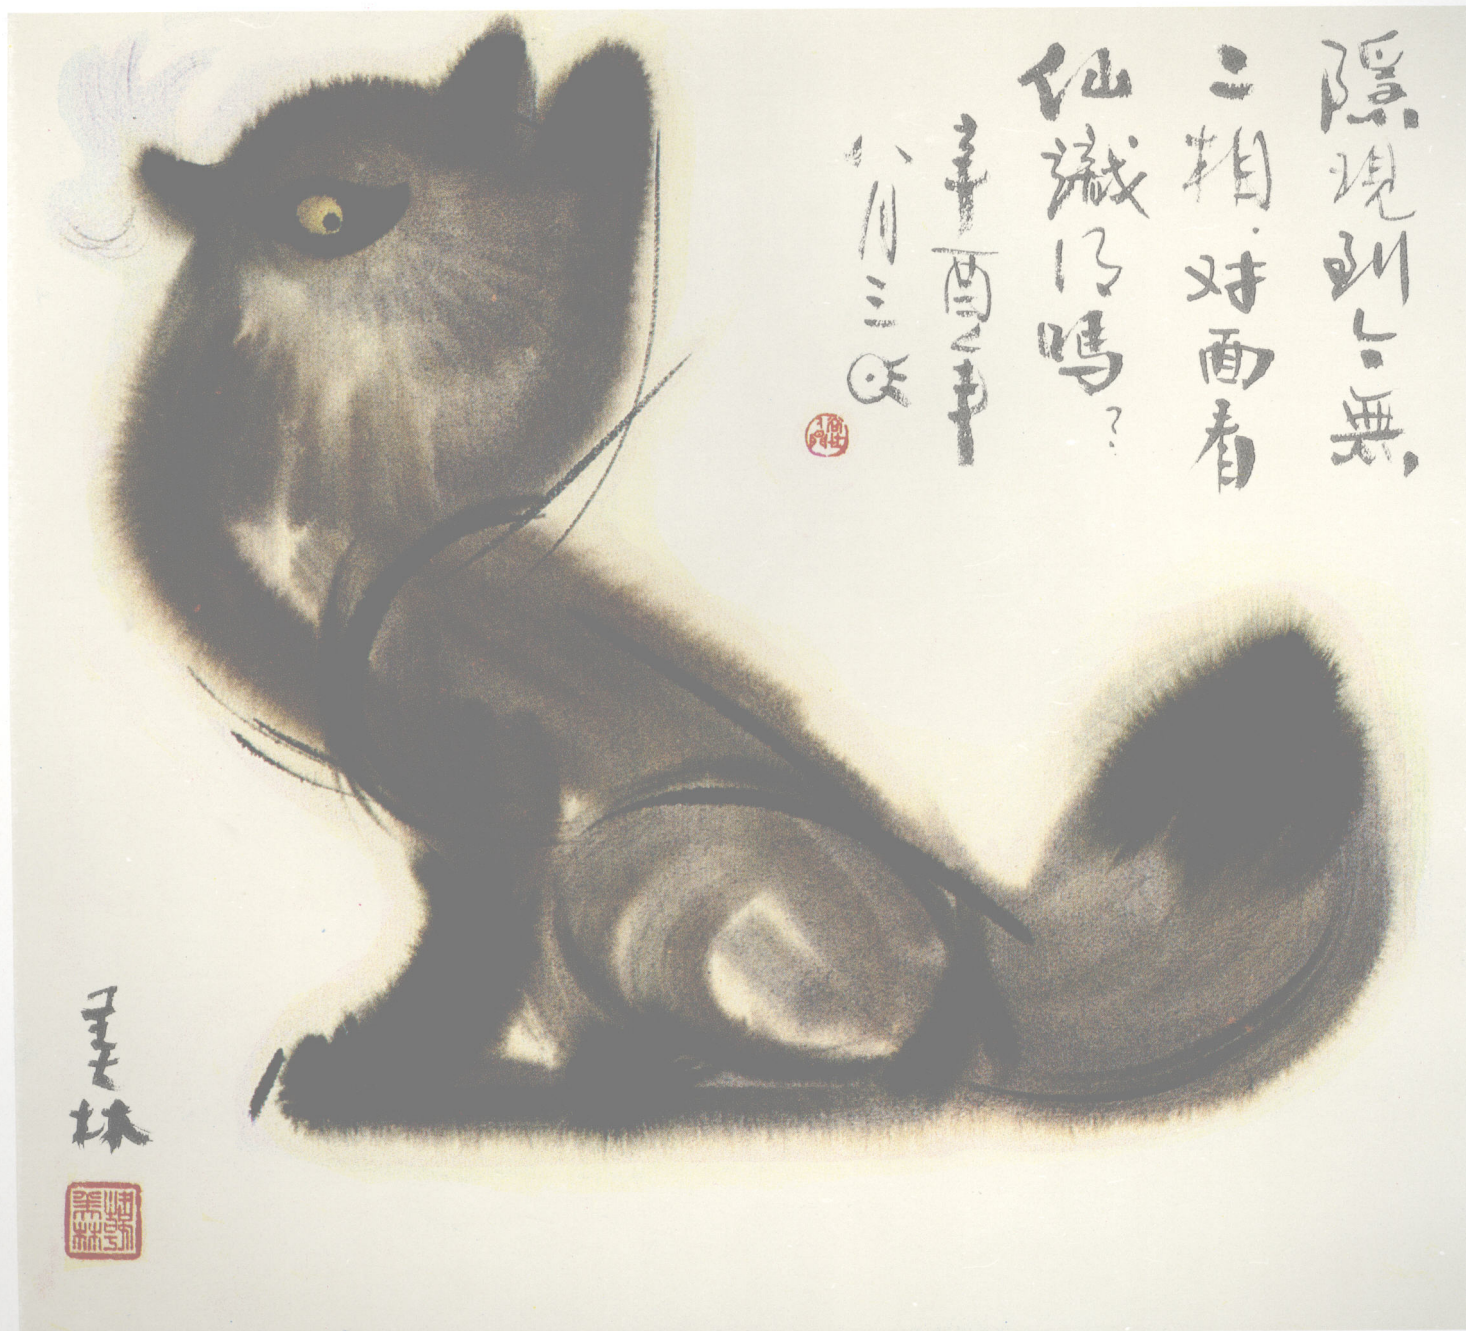 隱現到今無
二相.对面看
仙識得嗎?
辛酉年
八月三
美林